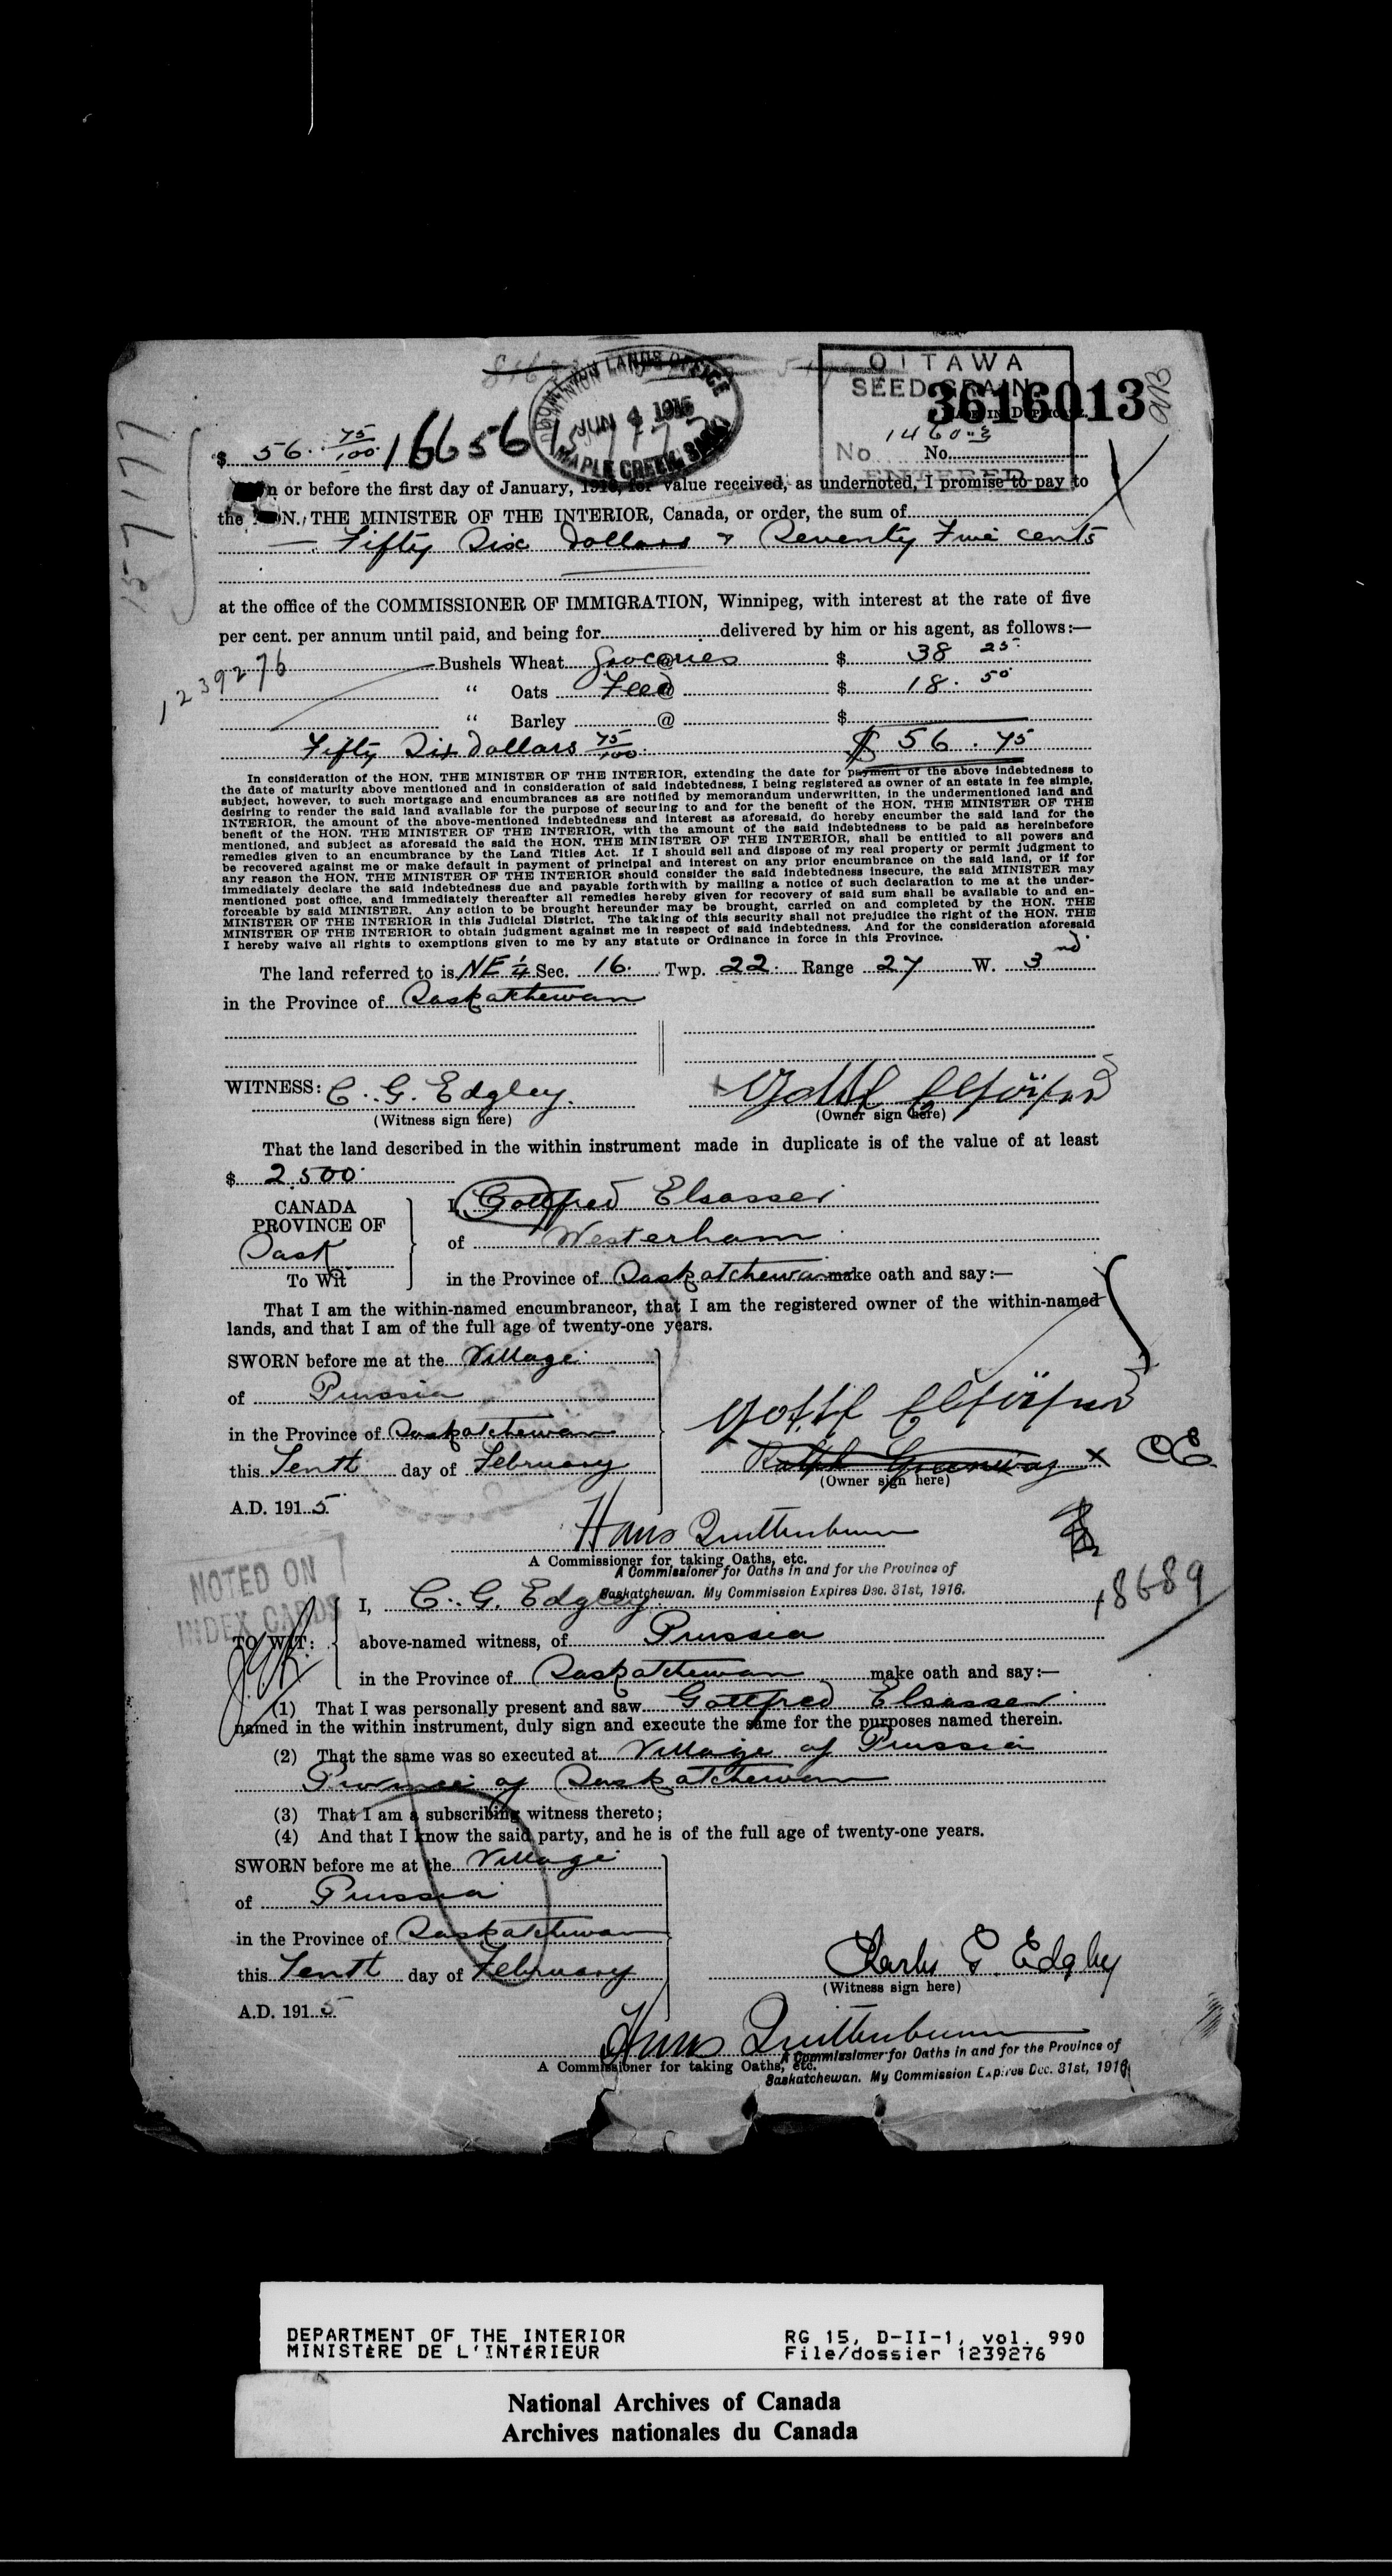 DOMINION LANDS OFFICE
JUN 4 1915
MAPLE CREEK, SASK.
OTTAWA
SEED GRAIN
3616013
No. 14603
ENTERED
$ 56. 75/100 166561
No.
157177
n or before the first day of January, 1916, for value received, as undernoted, I promise to pay to
the HON. THE MINISTER OF THE INTERIOR, Canada, or order, the sum of
Fifty Six Dollars & Seventy Five cents
at the office of the COMMISSIONER OF IMMIGRATION, Winnipeg, with interest at the rate of five
per cent. per annum until paid, and being for delivered by him or his agent, as follows:—
1239276
Bushels Wheat Groceries @ $ 38 25
" Oats Feed @ $ 18. 50
" Barley @ $
Fifty Six Dollars 75/100 $ 56.75
In consideration of the HON. THE MINISTER OF THE INTERIOR, extending the date for payment of the above indebtedness to
the date of maturity above mentioned and in consideration of said indebtedness, I being registered as owner of an estate in fee simple,
subject, however, to such mortgage and encumbrances as are notified by memorandum underwritten, in the undermentioned land and
desiring to render the said land available for the purpose of securing to and for the benefit of the HON. THE MINISTER OF THE
INTERIOR, the amount of the above-mentioned indebtedness and interest as aforesaid, do hereby encumber the said land for the
benefit of the HON. THE MINISTER OF THE INTERIOR, with the amount of the said indebtedness to be paid as hereinbefore
mentioned, and subject as aforesaid the said the HON. THE MINISTER OF THE INTERIOR, shall be entitled to all powers and
remedies given to an encumbrance by the Land Titles Act. If I should sell and dispose of my real property or permit judgment to
be recovered against me or make default in payment of principal and interest on any prior encumbrance on the said land, or if for
any reason the HON. THE MINISTER OF THE INTERIOR should consider the said indebtedness insecure, the said MINISTER may
immediately declare the said indebtedness due and payable forthwith by mailing a notice of such declaration to me at the under-
mentioned post office, and immediately thereafter all remedies hereby given for recovery of said sum shall be available to and en-
forceable by said MINISTER. Any action to be brought hereunder may be brought, carried on and completed by the HON. THE
MINISTER OF THE INTERIOR in this Judicial District. The taking of this security shall not prejudice the right of the HON. THE
MINISTER OF THE INTERIOR to obtain judgment against me in respect of said indebtedness. And for the consideration aforesaid
I hereby waive all rights to exemptions given to me by any statute or Ordinance in force in this Province.
The land referred to is NE 1/4 Sec. 16. Twp. 22. Range 27 W. 3 nd
in the Province of Saskatchewan
WITNESS: C. G. Edgley. Gottf Elsässer
(Witness sign here) (Owner sign here)
That the land described in the within instrument made in duplicate is of the value of at least
$ 2.500.
CANADA
PROVINCE OF
Sask
To Wit
I Gottfred Elsasser
of Westerham
in the Province of Saskatchewan make oath and say:—
That I am the within-named encumbrancor, that I am the registered owner of the within-named
lands, and that I am of the full age of twenty-one years.
SWORN before me at the Village
of Prussia
in the Province of Saskatchewan
this Tenth day of February
A.D. 1915.
Gottf Elsässer
Ralph Greenway x CE
(Owner sign here)
Hans Quittenbaum
A Commissioner for taking Oaths, etc.
A Commissioner for Oaths in and for the Province of
Saskatchewan. My Commission Expires Dec. 31st, 1916.
NOTED ON
INDEX CARDS
18689
TO WIT:
I, C. G. Edgley
above-named witness, of Prussia
in the Province of Saskatchewan make oath and say:—
(1) That I was personally present and saw Gottfred Elsasser
named in the within instrument, duly sign and execute the same for the purposes named therein.
(2) That the same was so executed at Village of Prussia
Province of Saskatchewan
(3) That I am a subscribing witness thereto;
(4) And that I know the said party, and he is of the full age of twenty-one years.
SWORN before me at the Village
of Prussia
in the Province of Saskatchewan
this Tenth day of February
A.D. 1915
Charles G. Edgley
(Witness sign here)
Hans Quittenbaum
A Commissioner for taking Oaths, etc.
A Commissioner for Oaths in and for the Province of
Saskatchewan. My Commission Expires Dec. 31st, 1916
DEPARTMENT OF THE INTERIOR
MINISTÈRE DE L'INTÉRIEUR
RG 15, D-II-1, vol. 990
File/dossier 1239276
National Archives of Canada
Archives nationales du Canada